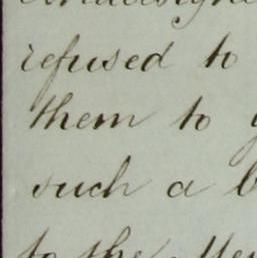 refused to
them to
such a
to the